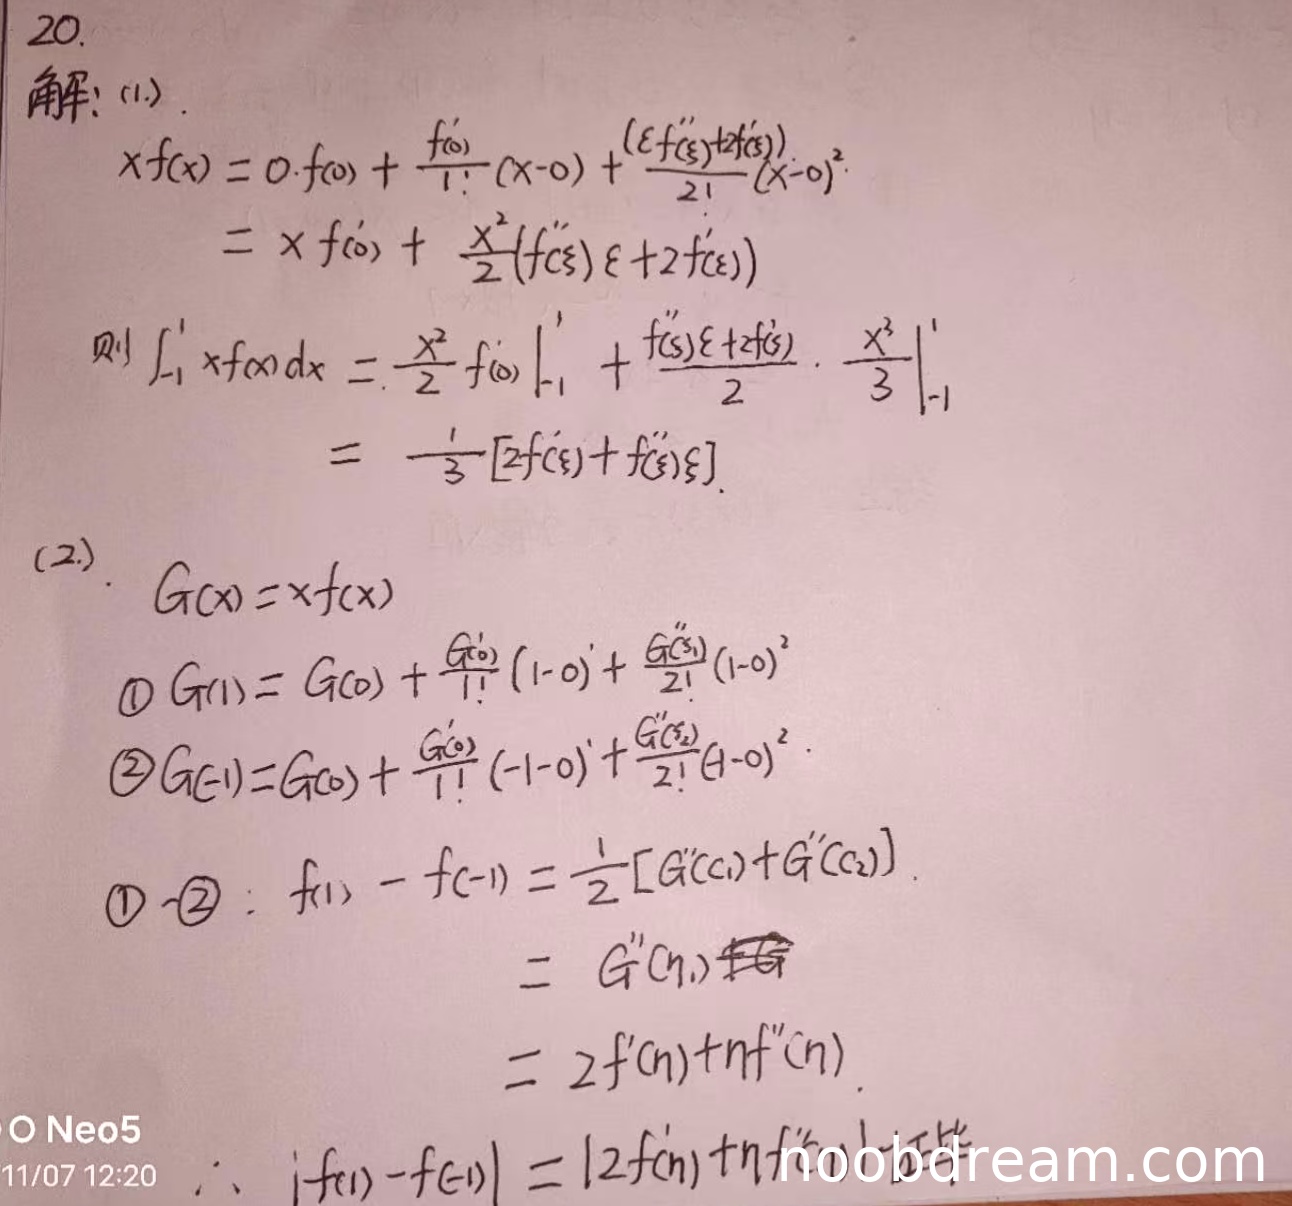 20.
解: (1.).
xf(x) = 0·f(0) + f'(0)/1! (x-0) + (ξf''(ξ)+2f'(ξ))/2! (x-0)².
= x f'(0) + x²/2 (f''(ξ)ξ+2f'(ξ))
则 ∫₋₁¹ xf(x)dx = x²/2 f'(0)|₋₁¹ + f''(ξ)ξ+2f'(ξ)/2 · x³/3|₋₁¹
= 1/3 [2f'(ξ)+f''(ξ)ξ].
(2.).
G(x)=xf(x)
① G(1) = G(0) + G'(0)/1! (1-0)' + G''(ξ₁)/2! (1-0)²
② G(-1) = G(0) + G'(0)/1! (-1-0)' + G''(ξ₂)/2! (-1-0)².
① - ② : f(1) - f(-1) = 1/2 [G''(C₁)+G''(C₂)].
= G''(η₁)
= 2f'(η)+ηf''(η).
∴ |f(1)-f(-1)| = |2f'(η)+ηf''(η)| 证毕
O Neo5
11/07 12:20
noobdream.com